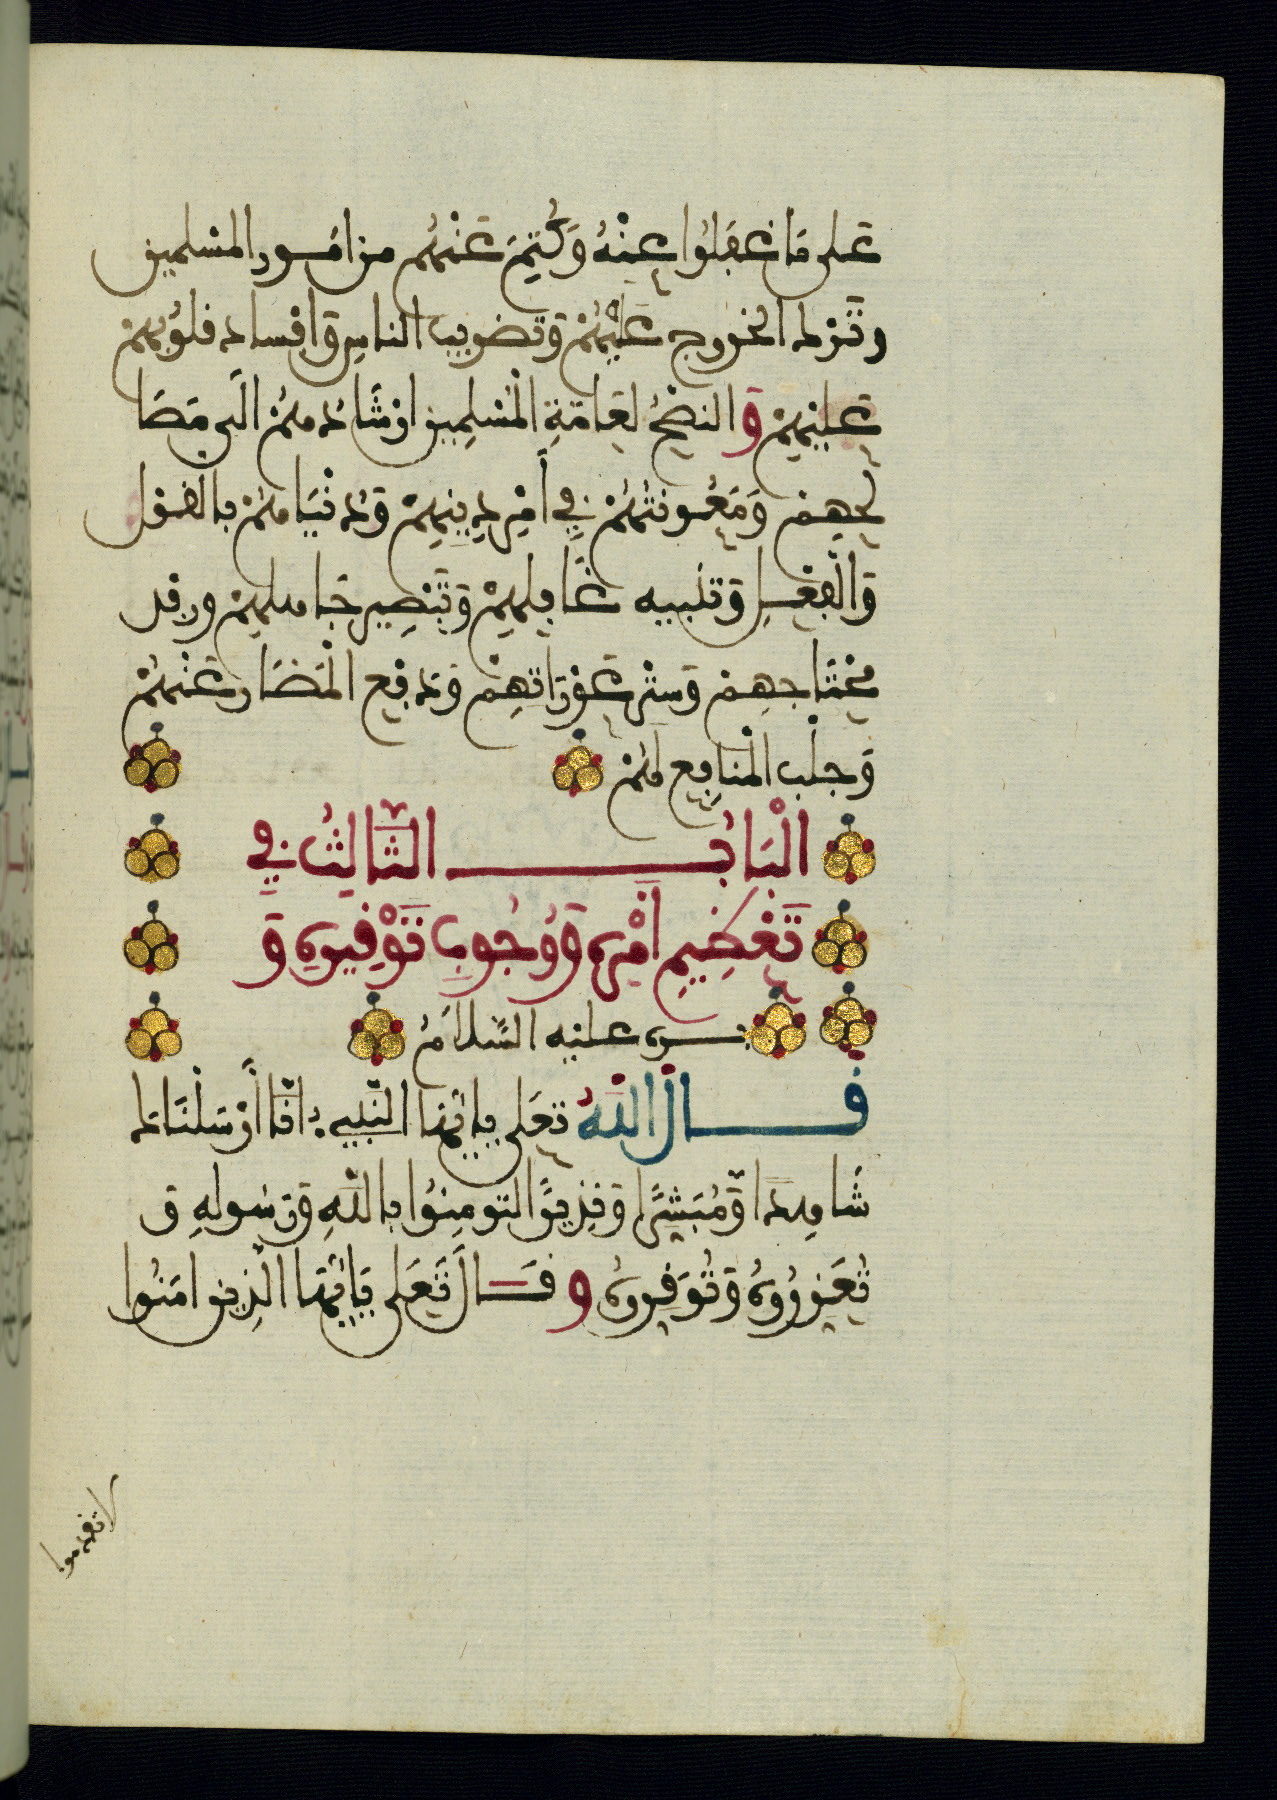 عَلى مَا غَفَلُوا عَنْهُ وَكُتِمَ عَنْهُم من امُور المسْلمين
وتَرْك الخروج عَلَيْهِمْ وَتضريب الناسِ وَافْساد قلوُبهمْ
عَليْهِمْ وَالنصْحُ لِعَامَّةِ الْمُسْلِمِين ارْشَادُهمْ الَى مَصَا
لِحِهِمْ وَمَعُونتهُمْ فِي أَمْرِ دِينِهِمْ وَدُنْيَاهُمْ بالقوْل
وَالْفِعْلِ وَتنْبيه غَافِلِهِمْ وَتَبْصِير جَاهلهِمْ ورفْد
مُحْتَاجِهِمْ وَسَتْر عَوْرَاتهِمْ وَدفْع الْمَضَار عَنْهُمْ
وَجلْب الْمَنَافِع لهُمْ
الْبَابُ الثَّالِثُ فِي
تَعْظِيمِ أَمْرِهِ وَوُجُوبِ تَوْقِيرِهِ وَ
بره عليْه السَّلَامُ
قال اللهُ تَعَلى يايّهَا النَّبيء إنَّا أَرْسَلْنَاك
شَاهِدًا وَّمُبَشِّرًا وَنَذِيرًا لتومِنُوا باللهِ وَرَسُولهِ وَ
تُعَزِّرُوهُ وَتُوَقِّرُوهُ وقَالَ تَعَلى يَايّهَا الذِين امَنُوا
لا تقدموا